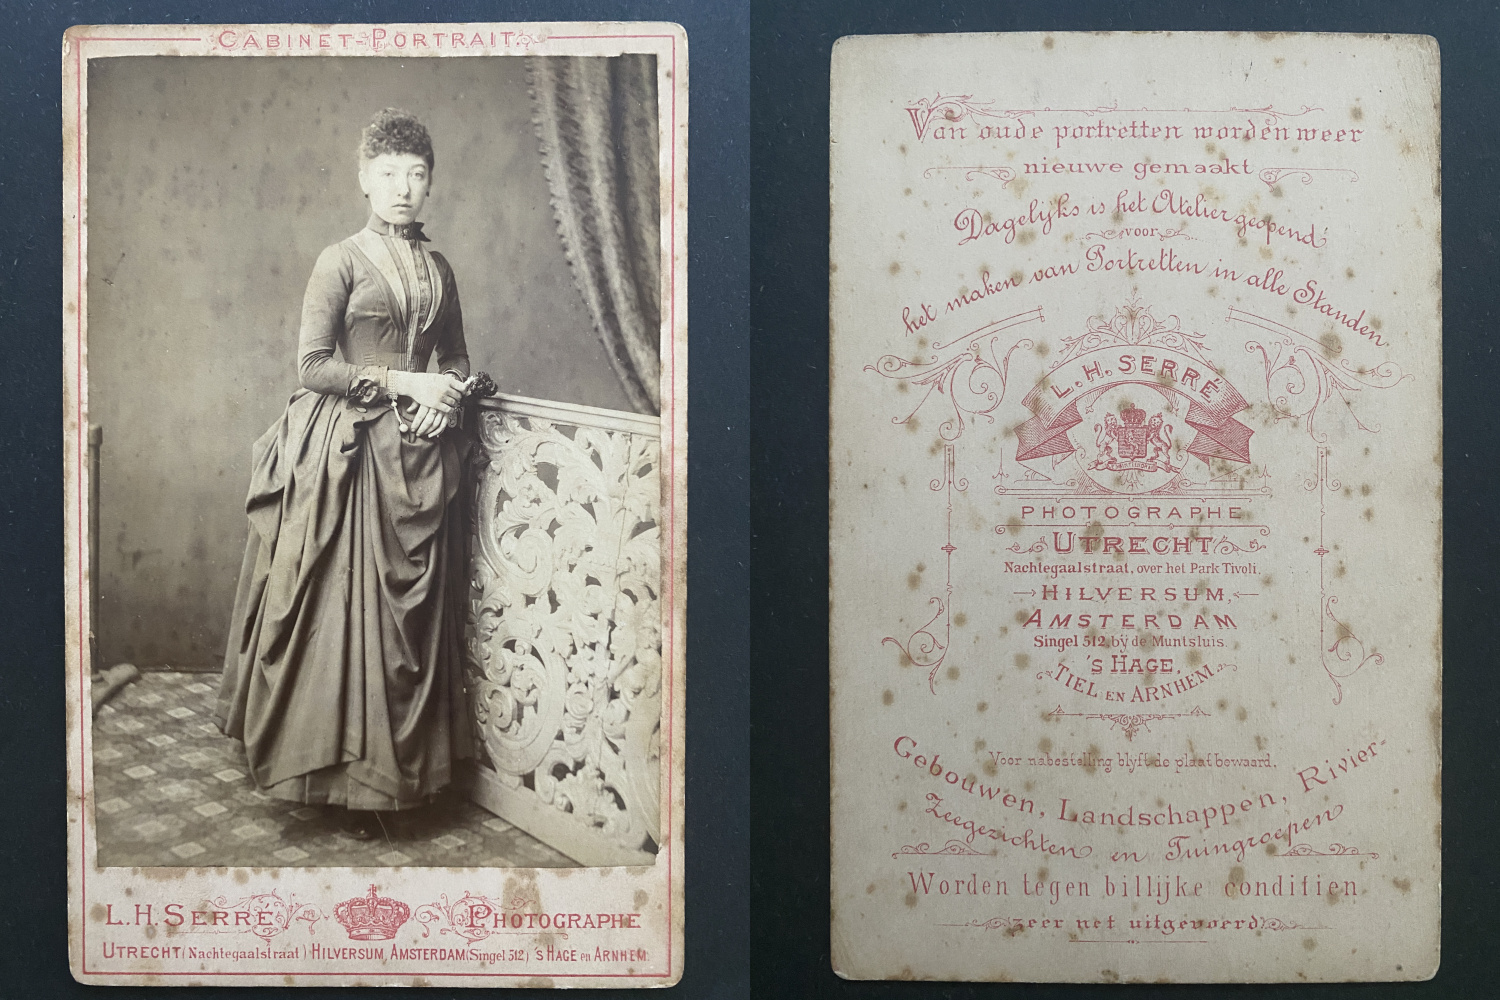 CABINET-PORTRAIT.
L.H. SERRÉ PHOTOGRAPHE
UTRECHT (Nachtegaalstraat) HILVERSUM, AMSTERDAM (Singel 512) 's HAGE en ARNHEM.
Van oude portretten worden weer
nieuwe gemaakt
Dagelyks is het Atelier geopend
voor
het maken van Portretten in alle Standen
L. H. SERRÉ
PHOTOGRAPHE
UTRECHT
Nachtegaalstraat, over het Park Tivoli.
HILVERSUM,
AMSTERDAM
Singel 512 by de Muntsluis.
's HAGE,
TIEL EN ARNHEM.
Voor nabestelling blyft de plaat bewaard.
Gebouwen, Landschappen, Rivier-
Zeegezichten en Tuingroepen
Worden tegen billijke conditien
zeer net uitgevoerd.